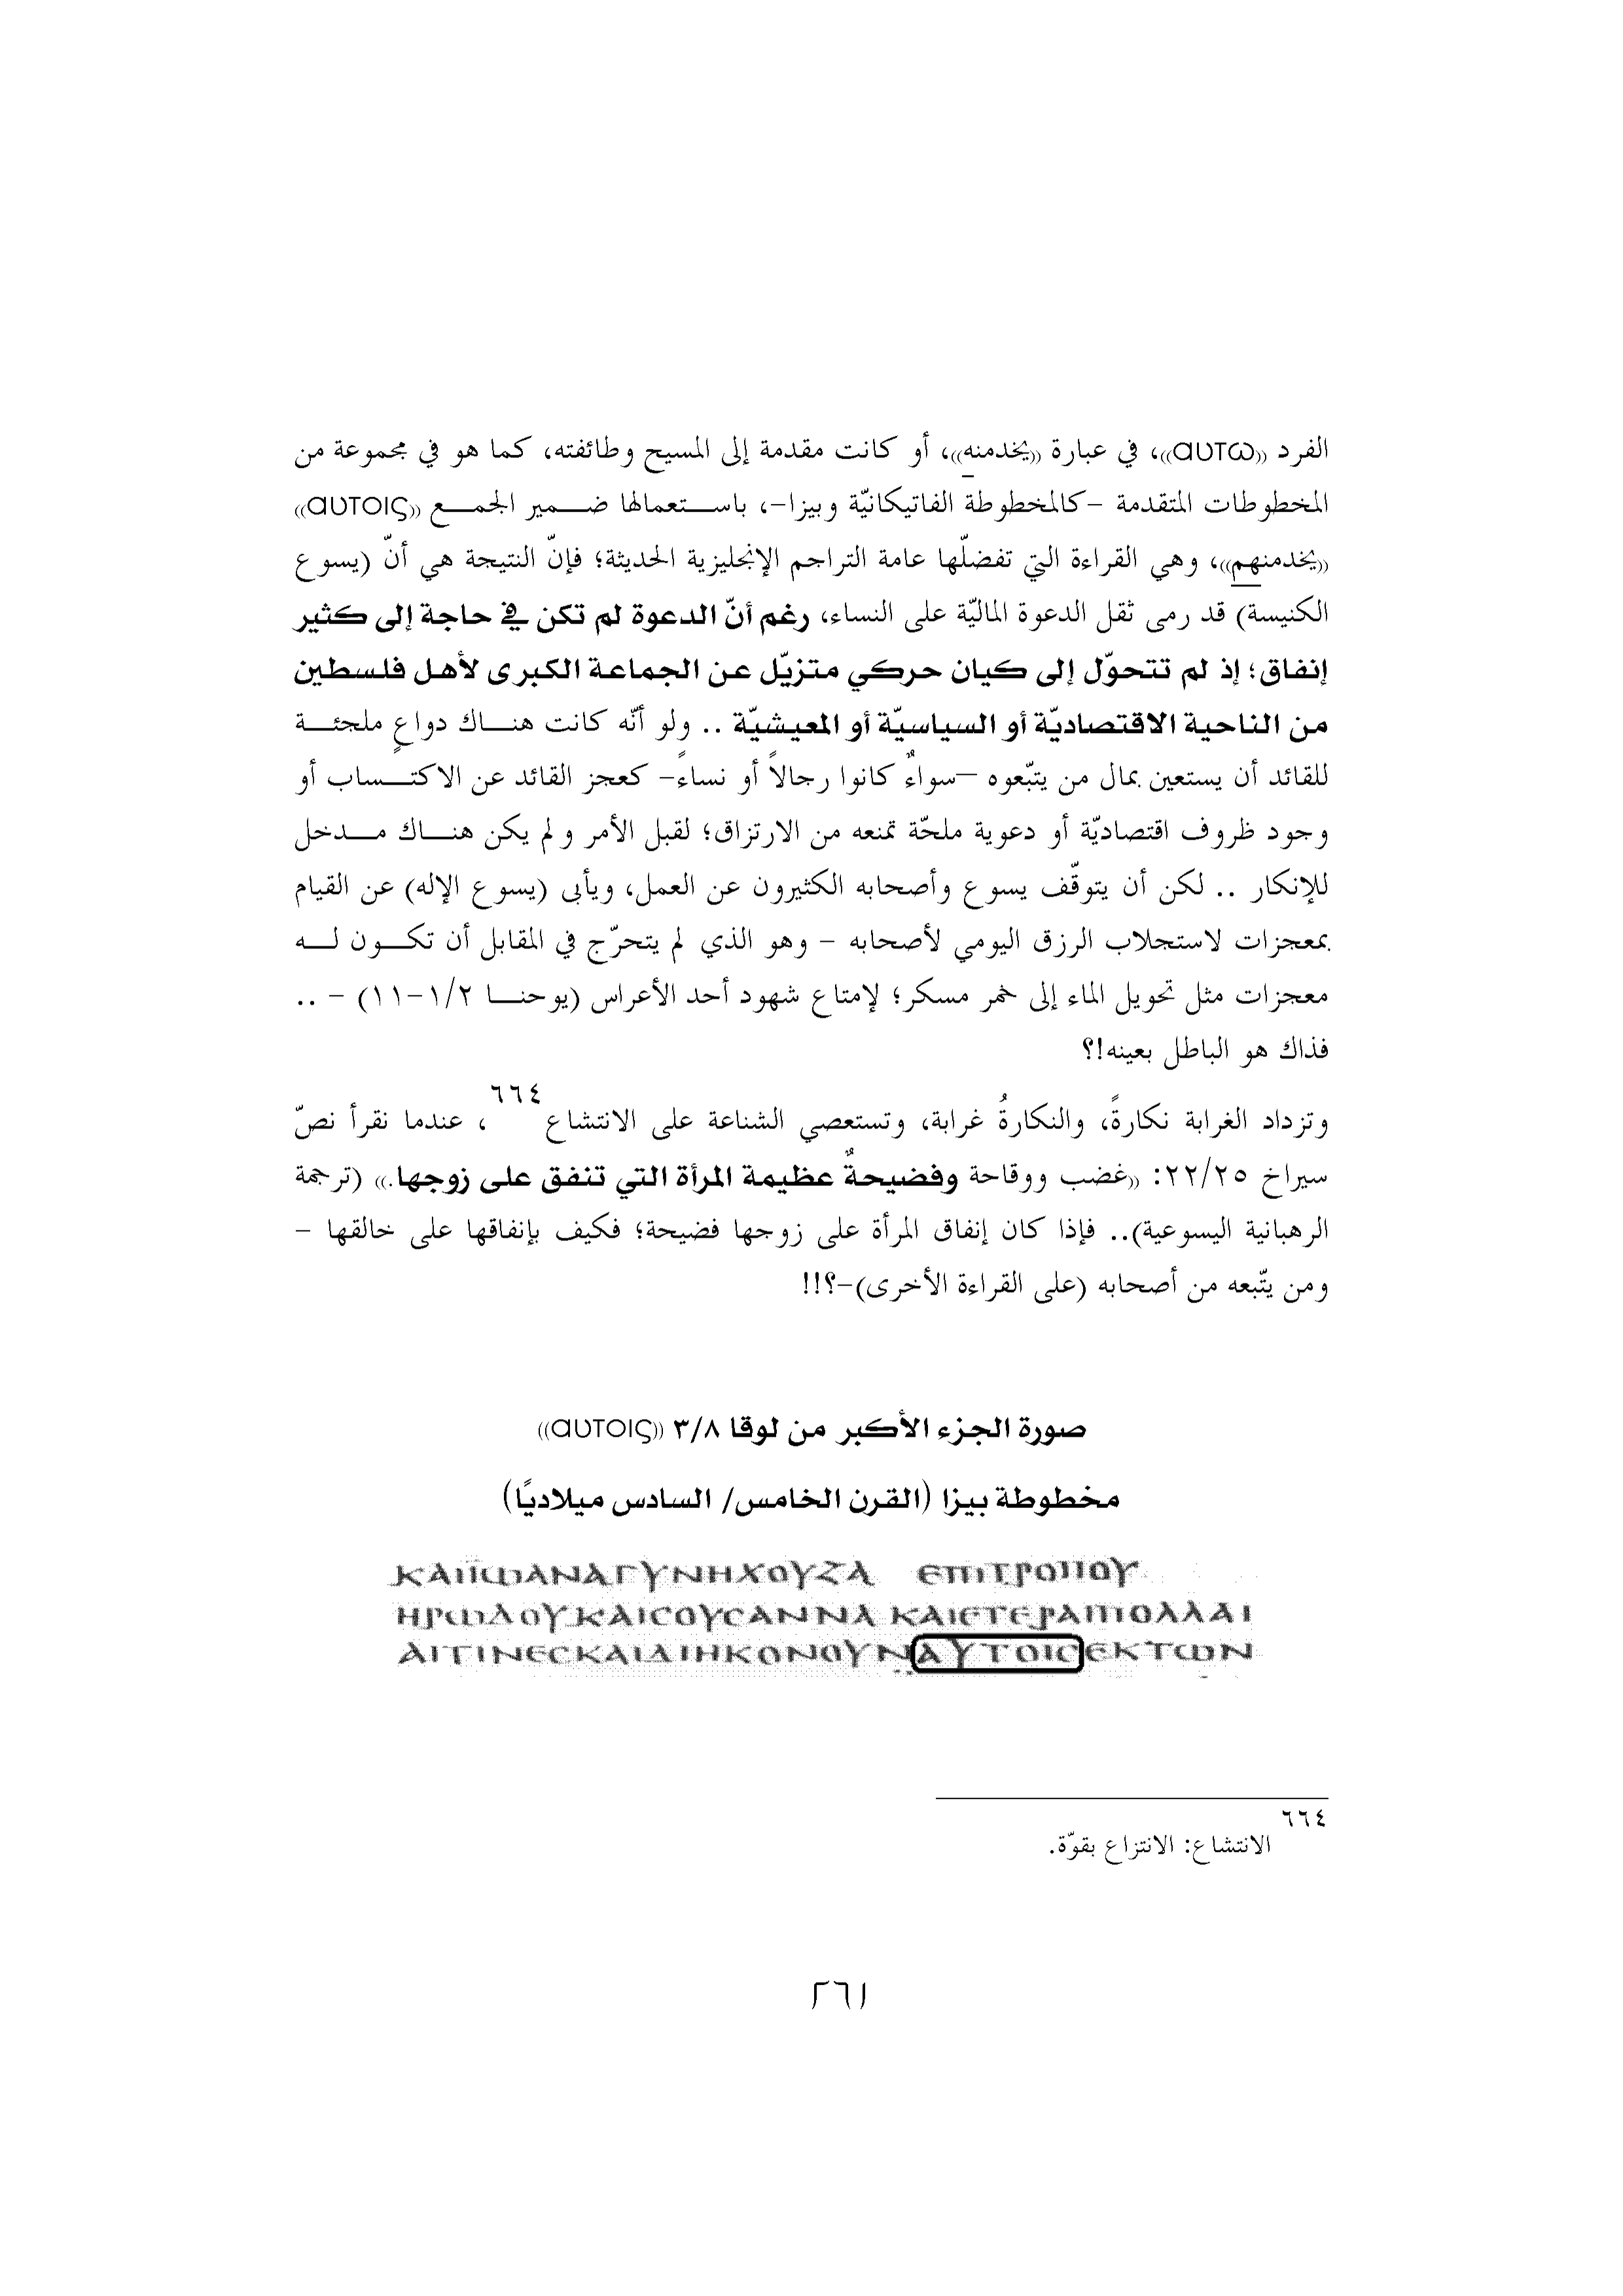 الفرد ((αυτω))، في عبارة ((يخدمنه))، أو كانت مقدمة إلى المسيح وطائفته، كما هو في مجموعة من
المخطوطات المتقدمة -كالمخطوطة الفاتيكانيّة وبيزا-، باستعمالها ضمير الجمع ((αυτοις))
((يخدمنهم))، وهي القراءة التي تفضلّها عامة التراجم الإنجليزية الحديثة؛ فإنّ النتيجة هي أنّ (يسوع
الكنيسة) قد رمى ثقل الدعوة الماليّة على النساء، رغم أنّ الدعوة لم تكن في حاجة إلى كثير
إنفاق؛ إذ لم تتحوّل إلى كيان حركي متزيّل عن الجماعة الكبرى لأهل فلسطين
من الناحية الاقتصاديّة أو السياسيّة أو المعيشيّة .. ولو أنّه كانت هناك دواعٍ ملجئة
للقائد أن يستعين بمال من يتبّعوه –سواءٌ كانوا رجالاً أو نساءً- كعجز القائد عن الاكتساب أو
وجود ظروف اقتصاديّة أو دعوية ملحّة تمنعه من الارتزاق؛ لقبل الأمر ولم يكن هناك مدخل
للإنكار .. لكن أن يتوقّف يسوع وأصحابه الكثيرون عن العمل، ويأبى (يسوع الإله) عن القيام
بمعجزات لاستجلاب الرزق اليومي لأصحابه – وهو الذي لم يتحرّج في المقابل أن تكون له
معجزات مثل تحويل الماء إلى خمر مسكر؛ لإمتاع شهود أحد الأعراس (يوحنا ١/٢-١١) – ..
فذاك هو الباطل بعينه!؟
وتزداد الغرابة نكارةً، والنكارةُ غرابة، وتستعصي الشناعة على الانتشاع٦٦٤، عندما نقرأ نصّ
سيراخ ٢٢/٢٥: ((غضب ووقاحة وفضيحةٌ عظيمة المرأة التي تنفق على زوجها.)) (ترجمة
الرهبانية اليسوعية).. فإذا كان إنفاق المرأة على زوجها فضيحة؛ فكيف بإنفاقها على خالقها –
ومن يتّبعه من أصحابه (على القراءة الأخرى)-؟!!
صورة الجزء الأكبر من لوقا ٣/٨ ((αυτοις))
مخطوطة بيزا (القرن الخامس/ السادس ميلاديًا)
ΚΑΙΪΩΑΝΑΓΥΝΗΧΟΥΖΑ ΕΠΙΤΡΟΠΟΥ
ΗΡΩΔΟΥΚΑΙCΟΥCΑΝΝΑ ΚΑΙΕΤΕΡΑΙΠΟΛΛΑΙ
ΑΙΤΙΝΕCΚΑΙΔΙΗΚΟΝΟΥΝΑΥΤΟΙCΕΚΤΩΝ
٦٦٤ الانتشاع: الانتزاع بقوّة.
٢٦١